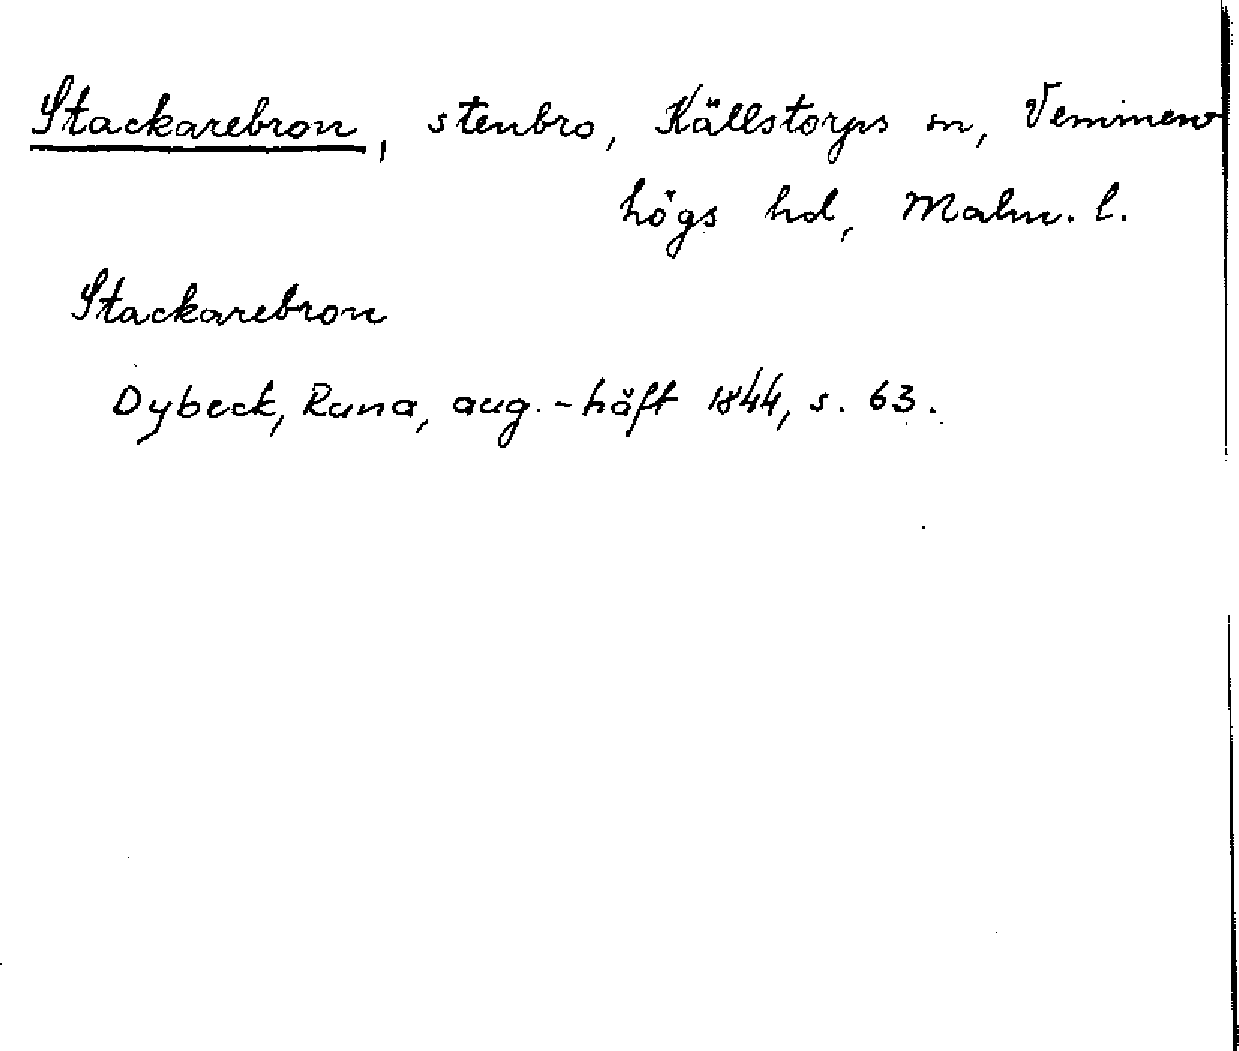 Stackarebron, stenbro, Källstorps sn, Vemmen-
högs hd, Malm. l.
Stackarebron
Dybeck, Runa, aug.-häft 1844, s. 63.